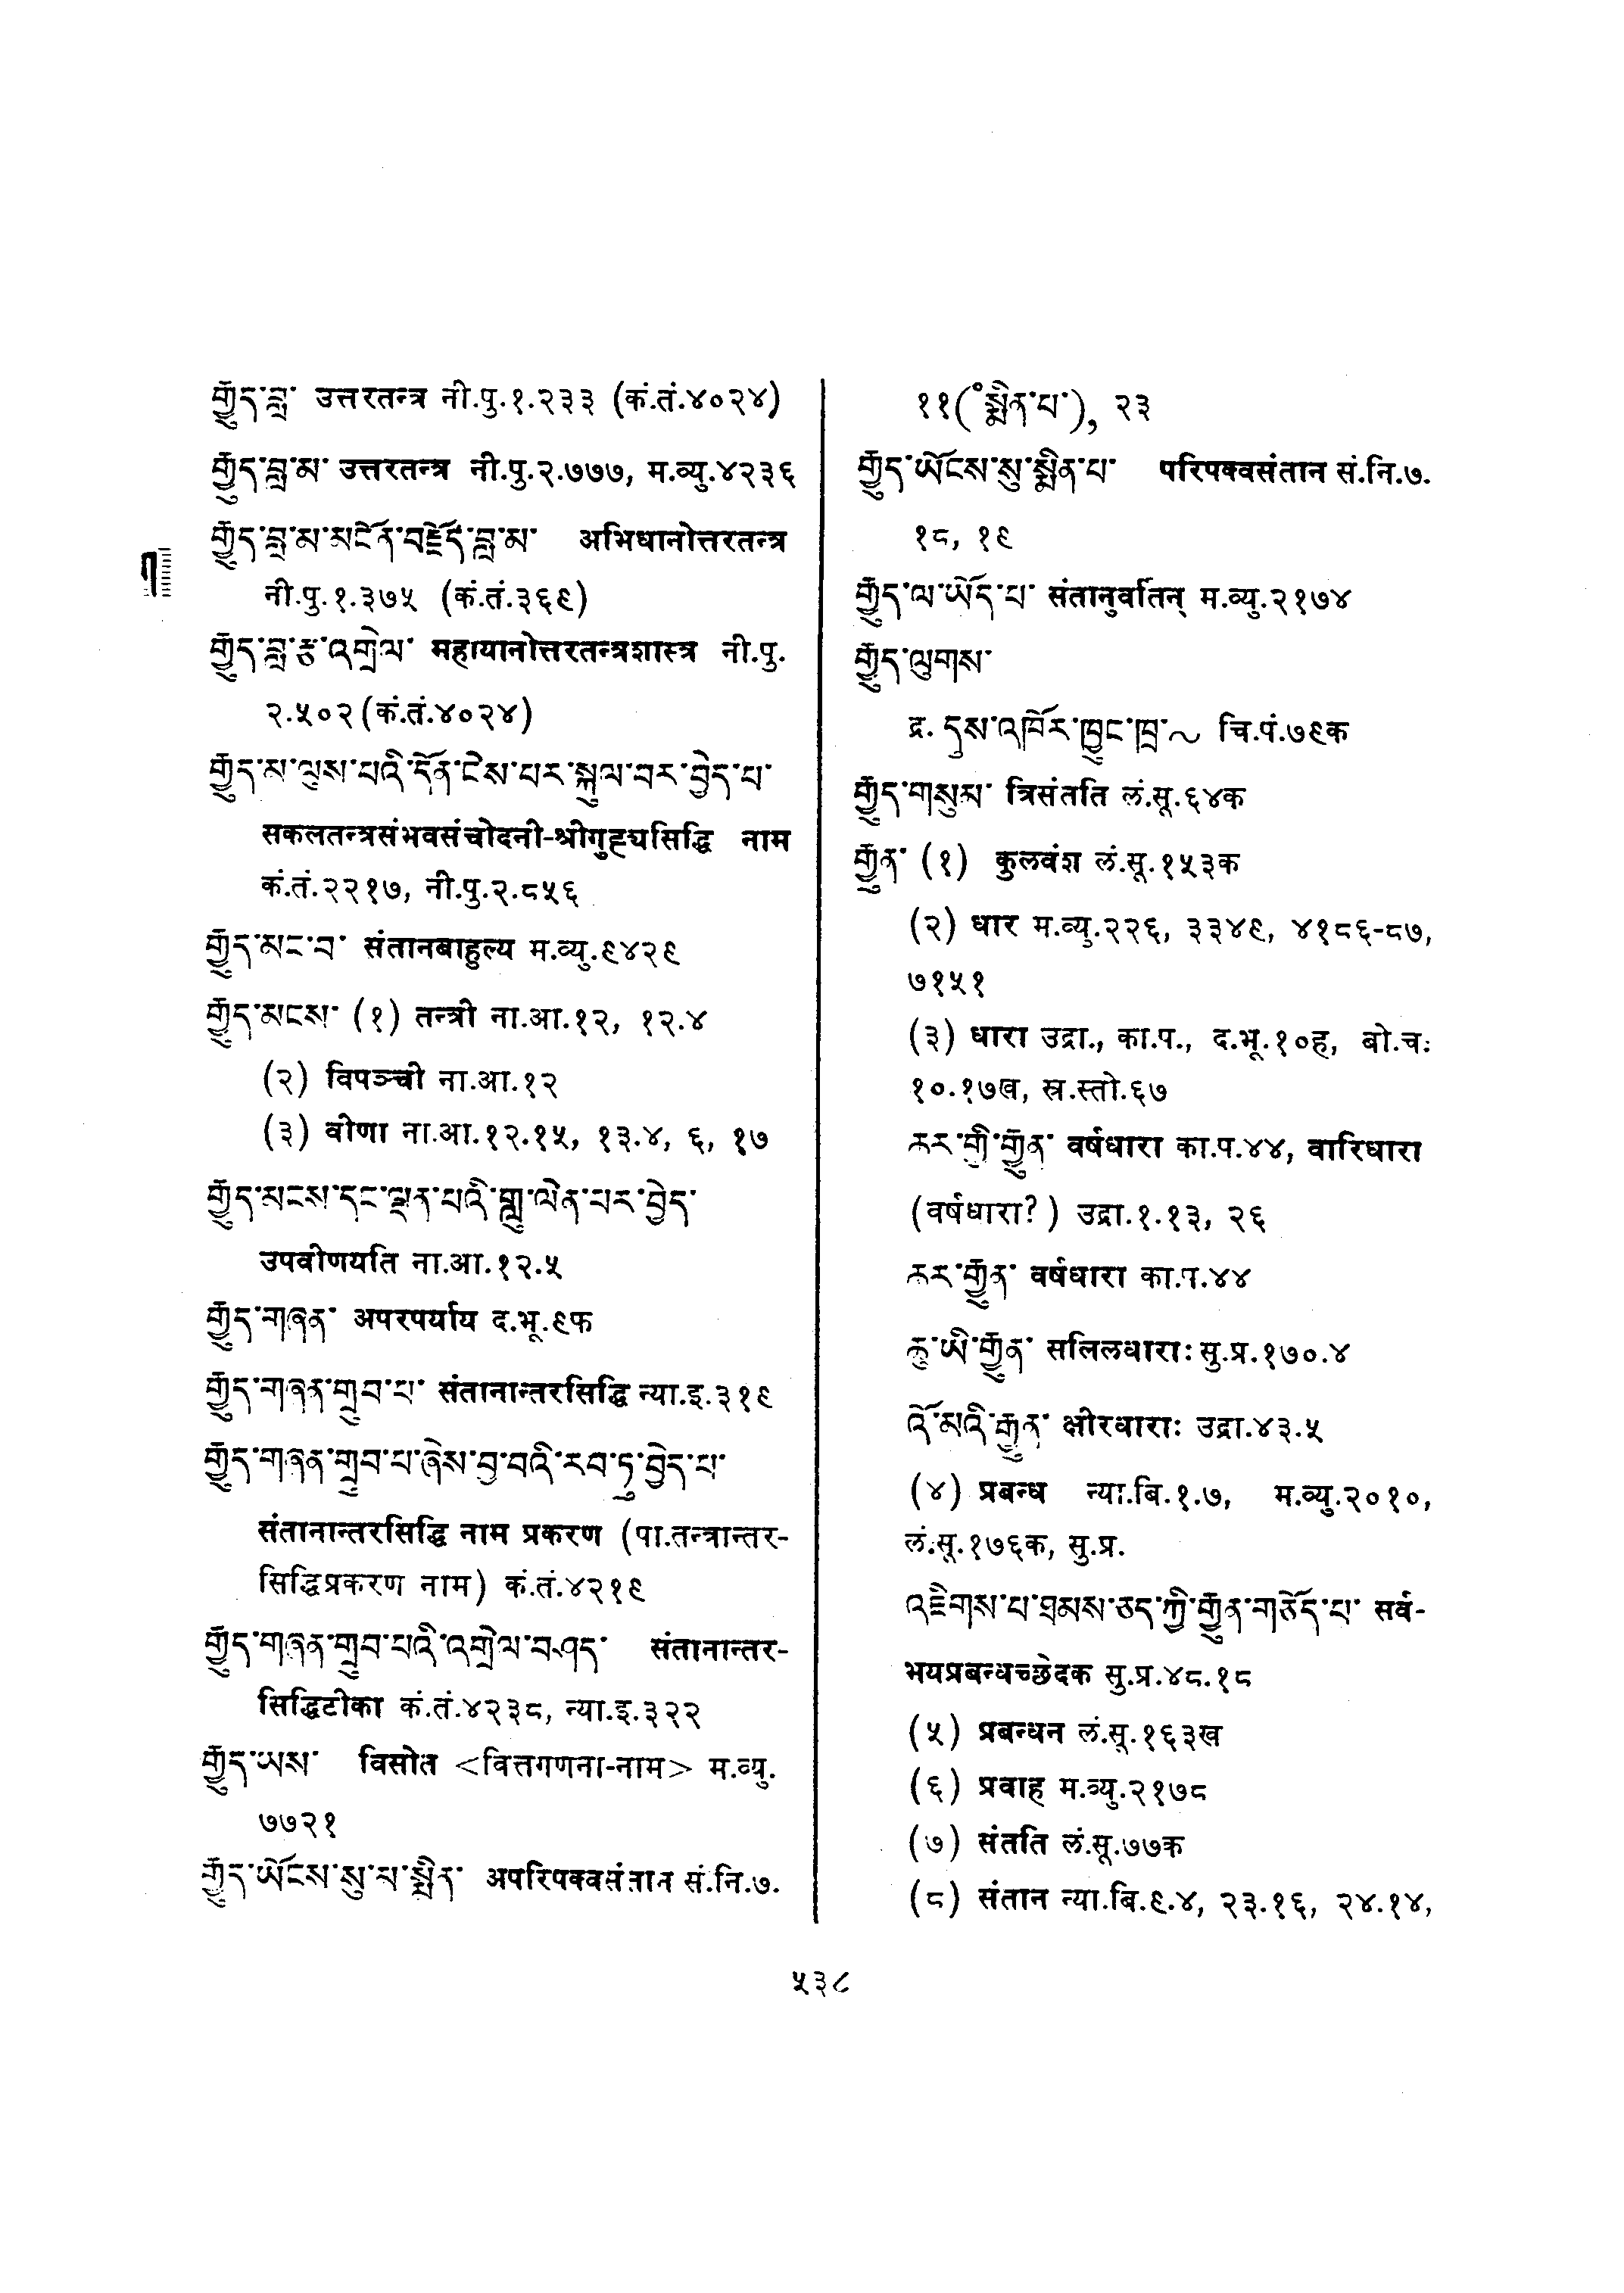 རྒྱུད་བླ་ उत्तरतन्त्र नी.पु.१.२३३ (कं.तं.४०२४)
རྒྱུད་བླ་མ་ उत्तरतन्त्र नी.पु.२.७७७, म.व्यु.४२३६
རྒྱུད་བླ་མ་མངོན་བརྗོད་བླ་མ་ अभिधानोत्तरतन्त्र
नी.पु.१.३७५ (कं.तं.३६९)
རྒྱུད་བླ་རྩ་འགྲེལ་ महायानोत्तरतन्त्रशास्त्र नी.पु.
२.५०२(कं.तं.४०२४)
རྒྱུད་མ་ལུས་པའི་དོན་ངེས་པར་སྐུལ་བར་བྱེད་པ་
सकलतन्त्रसंभवसंचोदनी-श्रीगुह्यसिद्धि नाम
कं.तं.२२१७, नी.पु.२.८५६
རྒྱུད་མང་བ་ संतानबाहुल्य म.व्यु.९४२९
རྒྱུད་མངས་ (१) तन्त्री ना.आ.१२, १२.४
(२) विपञ्ची ना.आ.१२
(३) वीणा ना.आ.१२.१५, १३.४, ६, १७
རྒྱུད་མངས་དང་ལྡན་པའི་གླུ་ལེན་པར་བྱེད་
उपवीणयति ना.आ.१२.५
རྒྱུད་གཞན་ अपरपर्याय द.भू.९फ
རྒྱུད་གཞན་གྲུབ་པ་ संतानान्तरसिद्धि न्या.इ.३१९
རྒྱུད་གཞན་གྲུབ་པ་ཞེས་བྱ་བའི་རབ་ཏུ་བྱེད་པ་
संतानान्तरसिद्धि नाम प्रकरण (पा.तन्त्रान्तर-
सिद्धिप्रकरण नाम) कं.तं.४२१९
རྒྱུད་གཞན་གྲུབ་པའི་འགྲེལ་བཤད་ संतानान्तर-
सिद्धिटीका कं.तं.४२३८, न्या.इ.३२२
རྒྱུད་ཡས་ विसोत <वित्तगणना-नाम> म.व्यु.
७७२१
རྒྱུད་ཡོངས་སུ་མ་སྨིན་ अपरिपक्वसंतान सं.नि.७.
११(°སྨིན་པ་), २३
རྒྱུད་ཡོངས་སུ་སྨིན་པ་ परिपक्वसंतान सं.नि.७.
१८, १९
རྒྱུད་ལ་ཡོད་པ་ संतानुर्वातन् म.व्यु.२१७४
རྒྱུད་ལུགས་
द्र. དུས་འཁོར་ཁྱུང་ཁྲ་~ चि.पं.७९क
རྒྱུད་གསུམ་ त्रिसंतति लं.सू.६४क
རྒྱུན་ (१) कुलवंश लं.सू.१५३क
(२) धार म.व्यु.२२६, ३३४९, ४१८६-८७,
७१५१
(३) धारा उद्रा., का.प., द.भू.१०ह, बो.च.
१०.१७ख, स्र.स्तो.६७
ཆར་གྱི་རྒྱུན་ वर्षधारा का.प.४४, वारिधारा
(वर्षधारा?) उद्रा.१.१३, २६
ཆར་རྒྱུན་ वर्षधारा का.प.४४
ཆུ་ཡི་རྒྱུན་ सलिलधाराः सु.प्र.१७०.४
འོ་མའི་རྒྱུན་ क्षीरधाराः उद्रा.४३.५
(४) प्रबन्ध न्या.बि.१.७, म.व्यु.२०१०,
लं.सू.१७६क, सु.प्र.
འཇིགས་པ་ཐམས་ཅད་ཀྱི་རྒྱུན་གཅོད་པ་ सर्व-
भयप्रबन्धच्छेदक सु.प्र.४८.१८
(५) प्रबन्धन लं.सू.१६३ख
(६) प्रवाह म.व्यु.२१७८
(७) संतति लं.सू.७७क
(८) संतान न्या.बि.९.४, २३.१६, २४.१४,
५३८